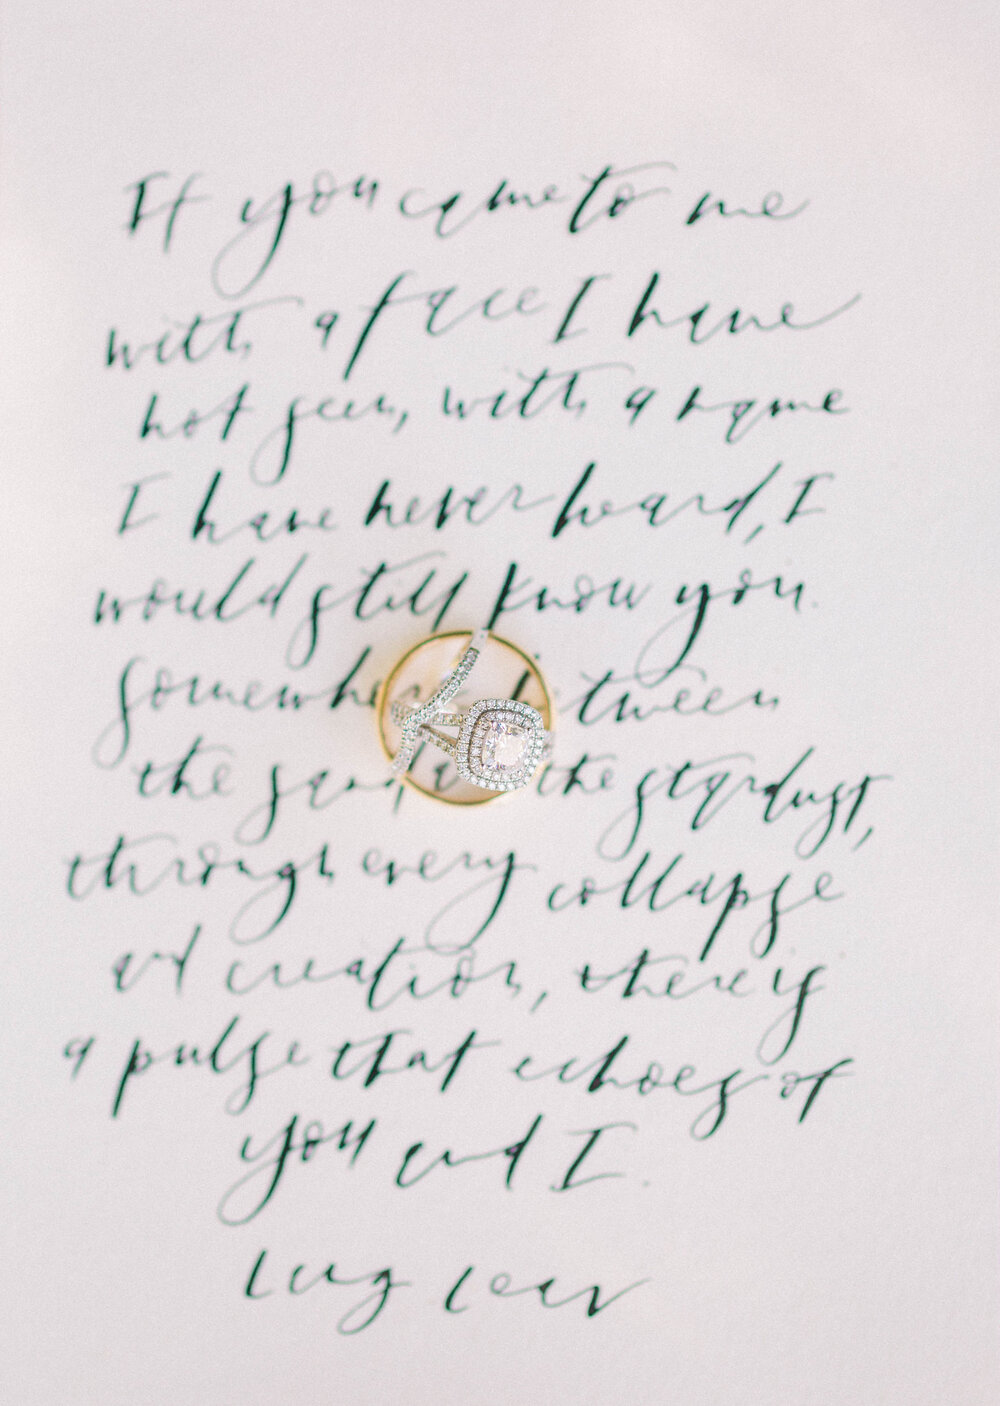 If you came to me
with a face I have
not seen, with a name
I have never heard, I
would still know you.
Somewhere between
the sand the stardust,
through every collapse
and creation, there is
a pulse that echoes of
you and I.
Lang Leav